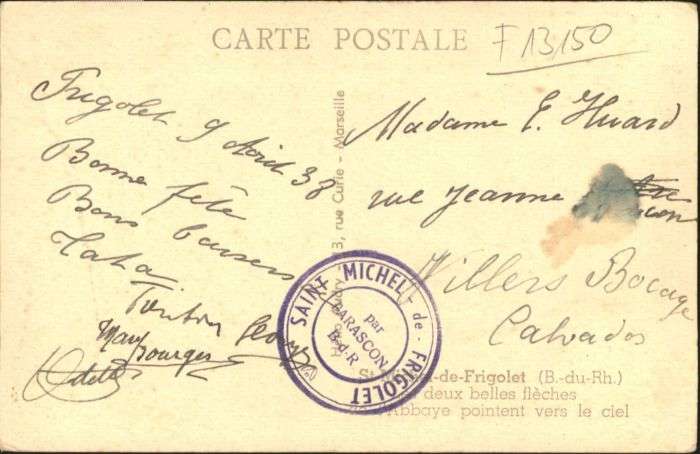 CARTE POSTALE
F 13,150
Frigolet 9 Août 38
Bonne fête
Bons baisers
Tata
Tonton
Odette
Madame E. Huard
rue Jeanne
Villers Bocage
Calvados
3, rue Curie - Marseille
SAINT MICHEL de FRIGOLET
par
TARASCON
B-d-R
-de-Frigolet (B.-du-Rh.)
deux belles flèches
l'Abbaye pointent vers le ciel